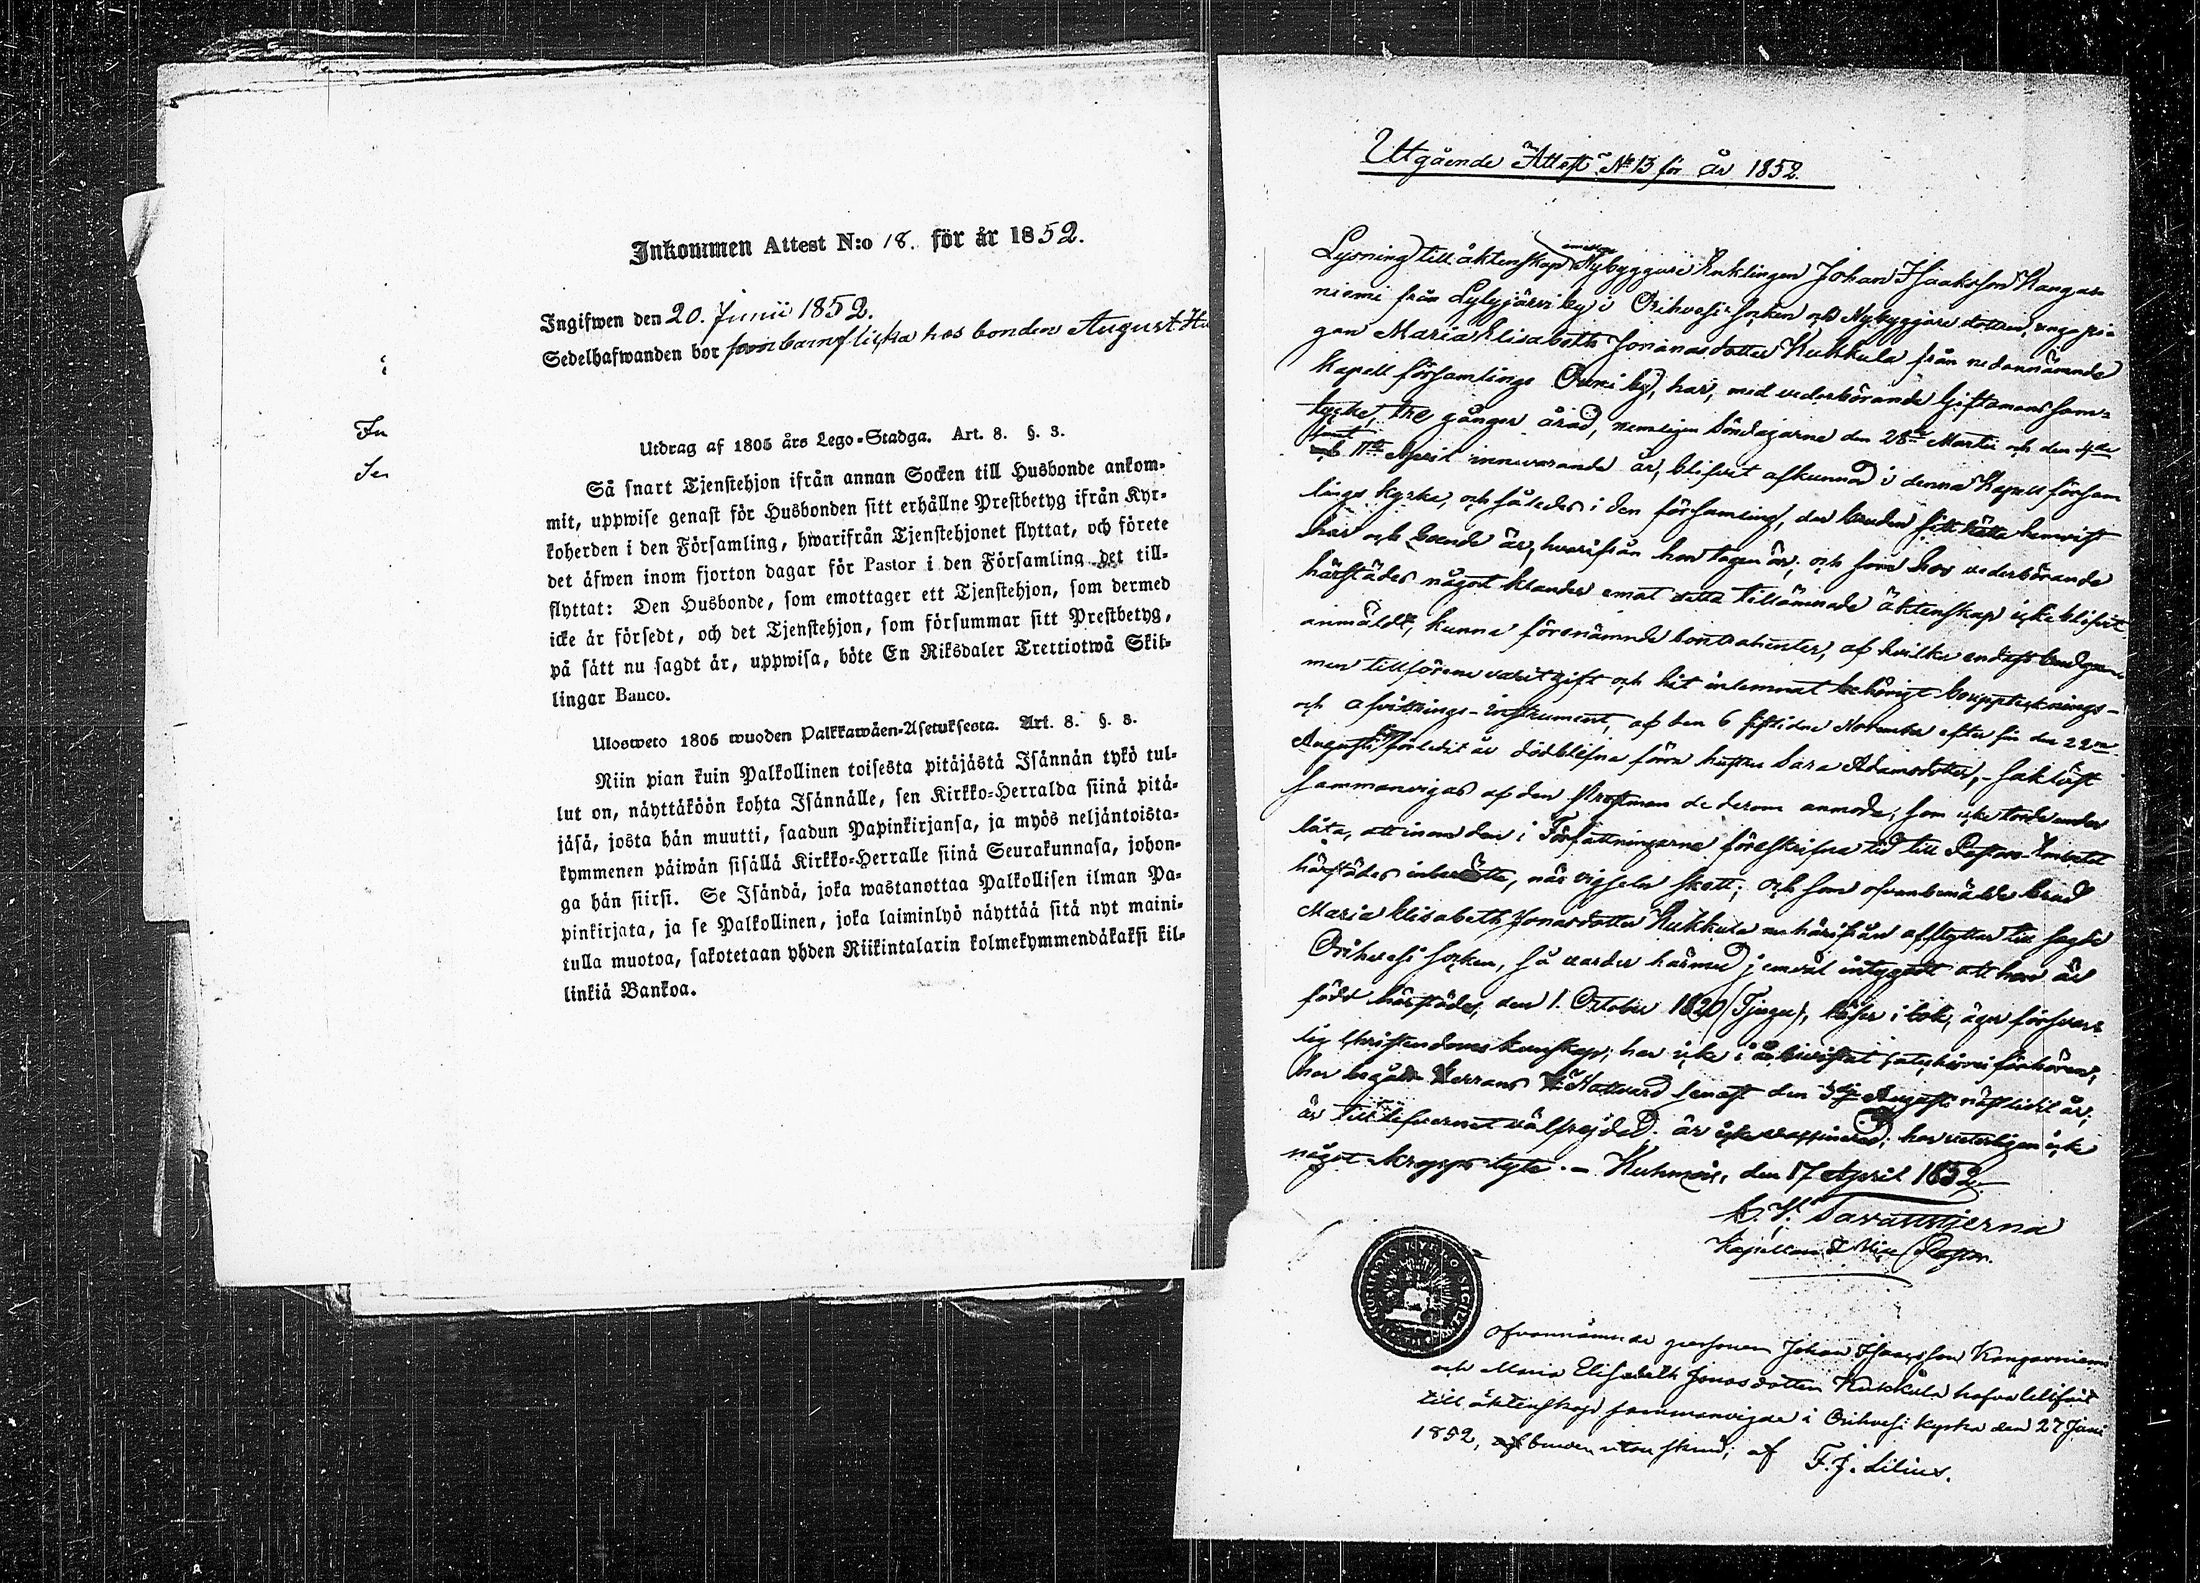 Inkommen Attest N:o 18. för år 1852.
Ingifwen den 20. Junii 1852.
Sedelhafwanden bor som barnflicka hos bonden August Hu
Fn
Utdrag af 1805 års Lego-Stadga. Art. 8. §. 3.
Så snart Tjenstehjon ifrån annan Socken till Husbonde ankom-
mit, uppwise genast för Husbonden sitt erhållne Prestbetyg ifrån Kyr-
koherden i den Församling, hwarifrån Tjenstehjonet flyttat, och förete
det äfwen inom fjorton dagar för Pastor i den Församling det till-
flyttat: Den Husbonde, som emottager ett Tjenstehjon, som dermed
icke är försedt, och det Tjenstehjon, som försummar sitt Prestbetyg,
på sätt nu sagdt är, uppwisa, böte En Riksdaler Trettiotwå Skil-
lingar Banco.
Ulosweto 1805 wuoden Palkkawäen-Asetuksesta. Art. 8. §. 3.
Niin pian kuin Palkollinen toisesta pitäjästä Isännän tykö tul-
lut on, näyttäköön kohta Isännälle, sen Kirkko-Herralda siinä pitä-
jäsä, josta hän muutti, saadun Papinkirjansa, ja myös neljäntoista-
kymmenen päiwän sisällä Kirkko-Herralle siinä Seurakunnasa, johon-
ga hän siirsi. Se Isändä, joka wastanottaa Palkollisen ilman Pa-
pinkirjata, ja se Palkollinen, joka laiminlyö näyttää sitä nyt maini-
tulla muotoa, sakotetaan yhden Riikintalarin kolmekymmendäkaksi kil-
linkiä Bankoa.
Utgående Attest N:o 13 för år 1852.
Lysning till äktenskap emellan Nybyggare Enklingen Johan Isaaksson Kangas-
niemi från Lylyjärvi by i Orihvesi socken och Nybyggare dottren, unga pi-
gan Maria Elisabeth Jonasdotter Kukkula från nedannämnde
Kapell församlings by, har, med vederbörande Giftomans sam-
tycke, tre gånger å rad, nemligen Söndagarne den 28de Martii och den 4de
samt 11te April innevarande år, blifvit afkunnad i denna Kapell försam
lings kyrka, och således i den församling, der bruden sitt rätta hemvist
har och boende är, hvarifrån hon tagen är; och som hos vederbörande
härstädes något klander emot detta tillämnade äktenskap icke blifvit
anmäldt, kunna förenämnde kontrahenter, af hvilka endast brudgum-
men tillförene varit gift och hit inlemnat behörigt bouppteknings-
och afvittrings-instrument, af den 6 sistlidne November efter sin den 22ne
Augusti förledit år dödblefna förra hustru Sara Adamsdotter, -
sammanvigas af den Prestman de derom anmoda, som icke torde under
låta, att inom den i Författningarne föreskrifna tid till Pastors-Embetet
härstädes inberätta, när vigseln skett; och som ofvanbemälde brud
Maria Elisabeth Jonasdotter Kukkula nu härifrån afflyttar till sagde
Orihvesi socken, så varder härmed jemväl intygadt att hon är
född härstädes, den 1. October 1820 (Tjugu), läser i bok, äger försvar-
lig Christendoms kunskap; har icke i år bivistat catechismi förhören;
har begått Herrans H. Nattvard senast den Augusti nästledit år;
är till lefvernet välfrejdad; är icke vaccinerad; har veterligen icke
något kropps lyte. - Kuhmois, den 17 April 1852.
C. V. Tavaststjerna
Kapellan & Vice Pastor.
Ofvannämnde personer Johan Isaaksson Kangasniemi
och Maria Elisabeth Jonasdotter Kukkula hafva blifvit
till äktenskap sammanvigde i Orihvesi kyrka den 27 Juni
1852, bruden utan skrud; af
F. J. Lilius.